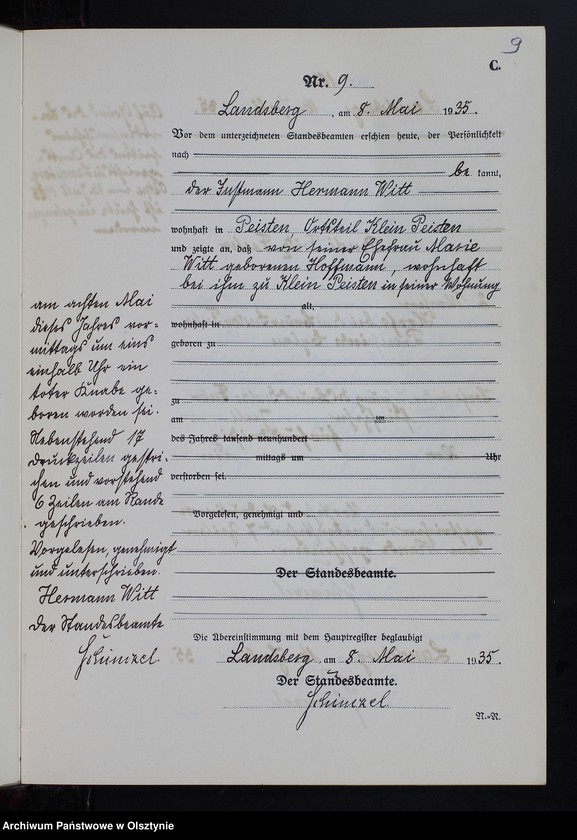 9
C.
Nr. 9.
Landsberg, am 8. Mai 1935.
Vor dem unterzeichneten Standesbeamten erschien heute, der Persönlichkeit
nach
be kannt,
der Instmann Hermann Witt
wohnhaft in Peisten, Ortsteil Klein Peisten
und zeigte an, daß von seiner Ehefrau Marie
Witt geborenen Hoffmann, wohnhaft
bei ihm zu Klein Peisten in seiner Wohnung
alt,
wohnhaft in
geboren zu
zu
am ten
des Jahres tausend neunhundert
mittags um Uhr
verstorben sei.
Vorgelesen, genehmigt und
Der Standesbeamte.
am achten Mai
dieses Jahres vor=
mittags um eins
einhalb Uhr ein
toter Knabe ge=
boren worden sei.
Nebenstehend 17
Druckzeilen gestri=
chen und vorstehend
6 Zeilen am Rande
geschrieben.
Vorgelesen, genehmigt
und unterschrieben.
Hermann Witt
Der Standesbeamte
Schünzel.
Die Übereinstimmung mit dem Hauptregister beglaubigt
Landsberg, am 8. Mai 1935.
Der Standesbeamte.
Schünzel.
N.=R.
Archiwum Państwowe w Olsztynie